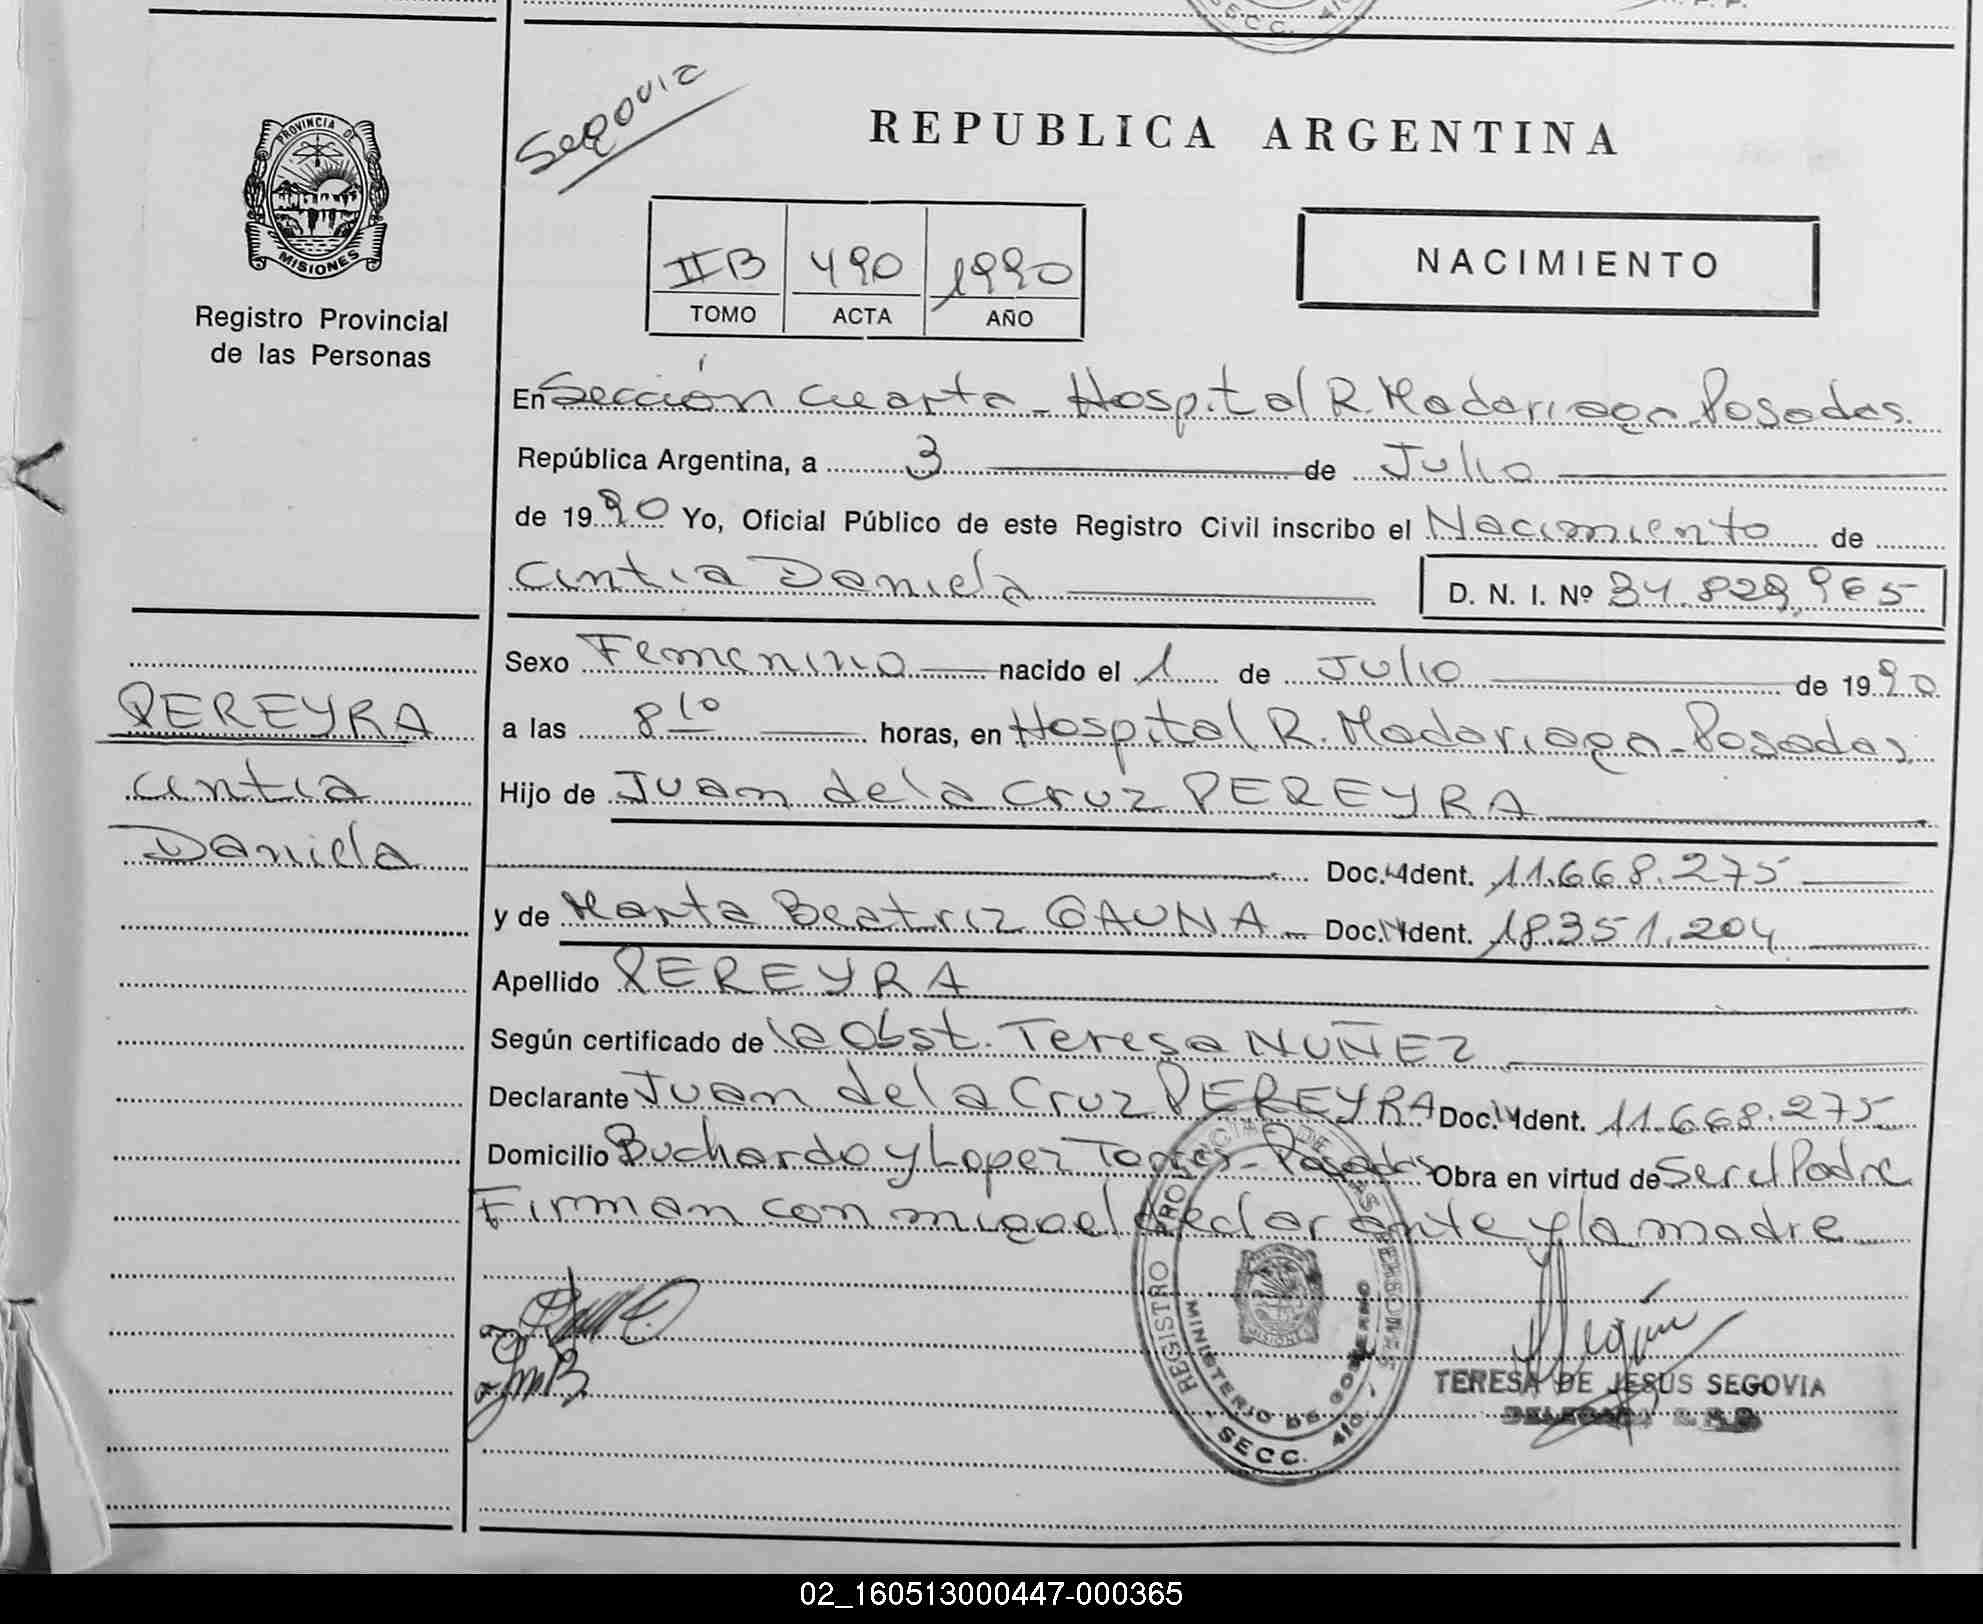 SECC. 4
Segovia
REPUBLICA ARGENTINA
PROVINCIA DE
MISIONES
Registro Provincial
de las Personas
IIB 490 1990
TOMO ACTA AÑO
NACIMIENTO
En Sección cuarta - Hospital R. Madariaga - Posadas.
República Argentina, a 3 de Julio
de 1990 Yo, Oficial Público de este Registro Civil inscribo el Nacimiento de
Cintia Daniela D. N. I. Nº 34.829.965
Sexo Femenino nacido el 1 de Julio de 1990
PEREYRA
Cintia
Daniela
a las 8 10 horas, en Hospital R. Madariaga - Posadas.
Hijo de Juan de la Cruz PEREYRA
Doc. Ident. 11.668.275
y de Marta Beatriz GAUNA Doc. Ident. 18.351.204
Apellido PEREYRA
Según certificado de la Obst. Teresa NUÑEZ
Declarante Juan de la Cruz PEREYRA Doc. Ident. 11.668.275
Domicilio Buchardo y Lopez Torres - Posadas Obra en virtud de Ser el Padre
Firman conmigo el declarante y la madre
REGISTRO PROVINCIAL DE LAS PERSONAS
MINISTERIO DE GOBIERNO
MISIONES
SECC. 4
TERESA DE JESUS SEGOVIA
02_160513000447-000365